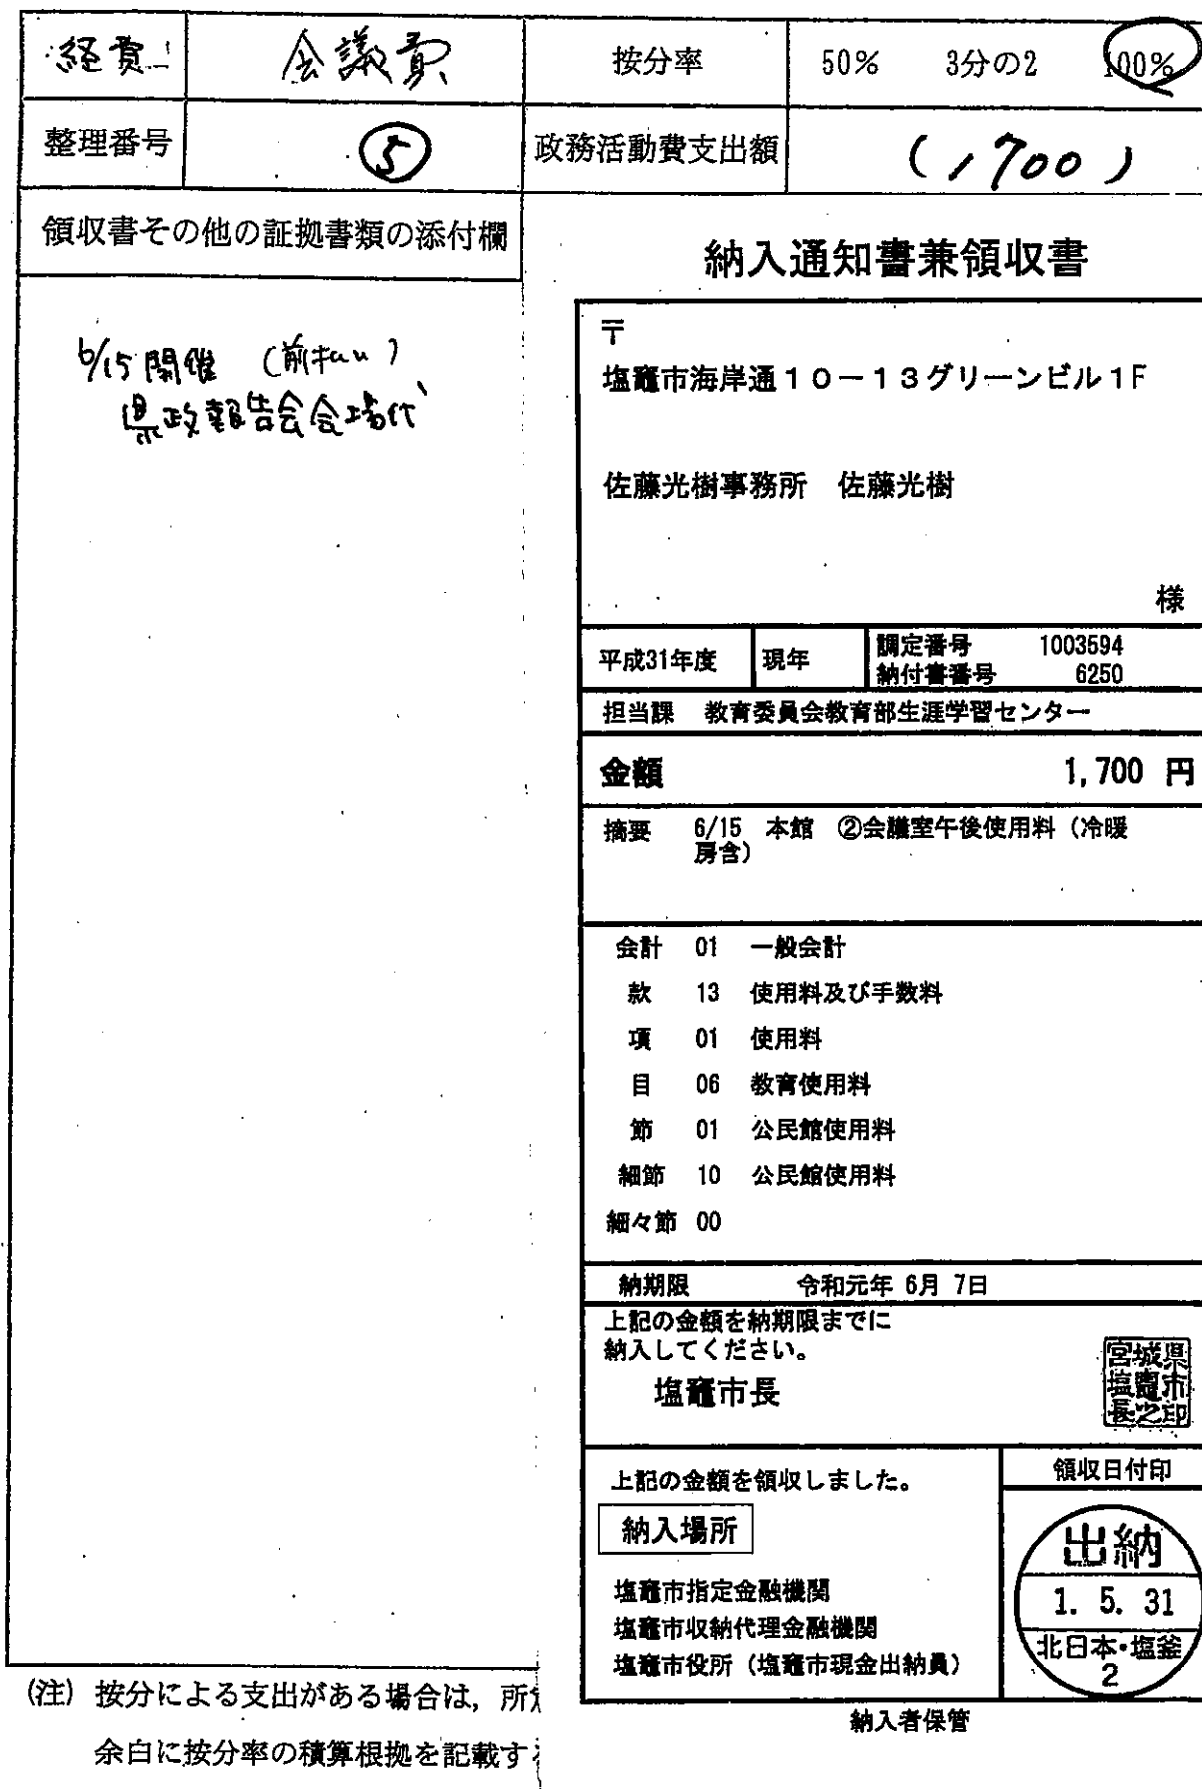 経費 会議費 按分率 50% 3分の2 100%
整理番号 ⑤ 政務活動費支出額 (1,700)
領収書その他の証拠書類の添付欄
6/15開催 (前払い)
県政報告会会場代
納入通知書兼領収書
〒
塩竈市海岸通10-13グリーンビル1F
佐藤光樹事務所 佐藤光樹
様
平成31年度 現年 調定番号 1003594
納付書番号 6250
担当課 教育委員会教育部生涯学習センター
金額 1,700 円
摘要 6/15 本館 ②会議室午後使用料(冷暖
房含)
会計 01 一般会計
款 13 使用料及び手数料
項 01 使用料
目 06 教育使用料
節 01 公民館使用料
細節 10 公民館使用料
細々節 00
納期限 令和元年 6月 7日
上記の金額を納期限までに
納入してください。
塩竈市長
宮城県
塩竈市
長之印
上記の金額を領収しました。
領収日付印
納入場所
塩竈市指定金融機関
塩竈市収納代理金融機関
塩竈市役所(塩竈市現金出納員)
出納
1. 5. 31
北日本・塩釜
2
納入者保管
(注) 按分による支出がある場合は,所
余白に按分率の積算根拠を記載す